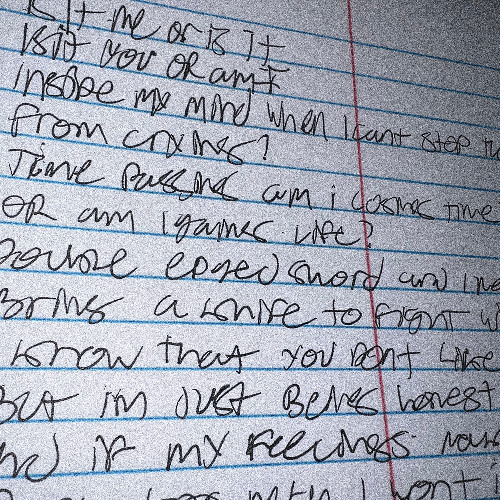 Is it me or is it
Is it you or am I
inside my mind when I cant stop
from crying?
Time passing am i cosmic time
OR am I games life?
Double edged sword and
Brings a knife to fight
I know that you Dont Like
But im Just Being honest
And if my feelings
I